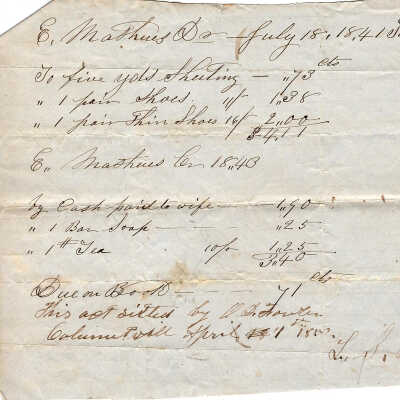 E. Mathews Dr — July 18, 1841
cts
To five yds Sheeting — ,,73
,, 1 pair Shoes 11/ 1,,38
,, 1 pair Thin Shoes 16/ 2,,00
3 4,,11
E. Mathews Cr 1843
By Cash paid to wife — 1,,90
,, 1 Bar Soap — ,,25
,, 1 lb Tea 10/ 1,,25
3,,40
cts
Due on Book — 71
This act settled by
April 1st